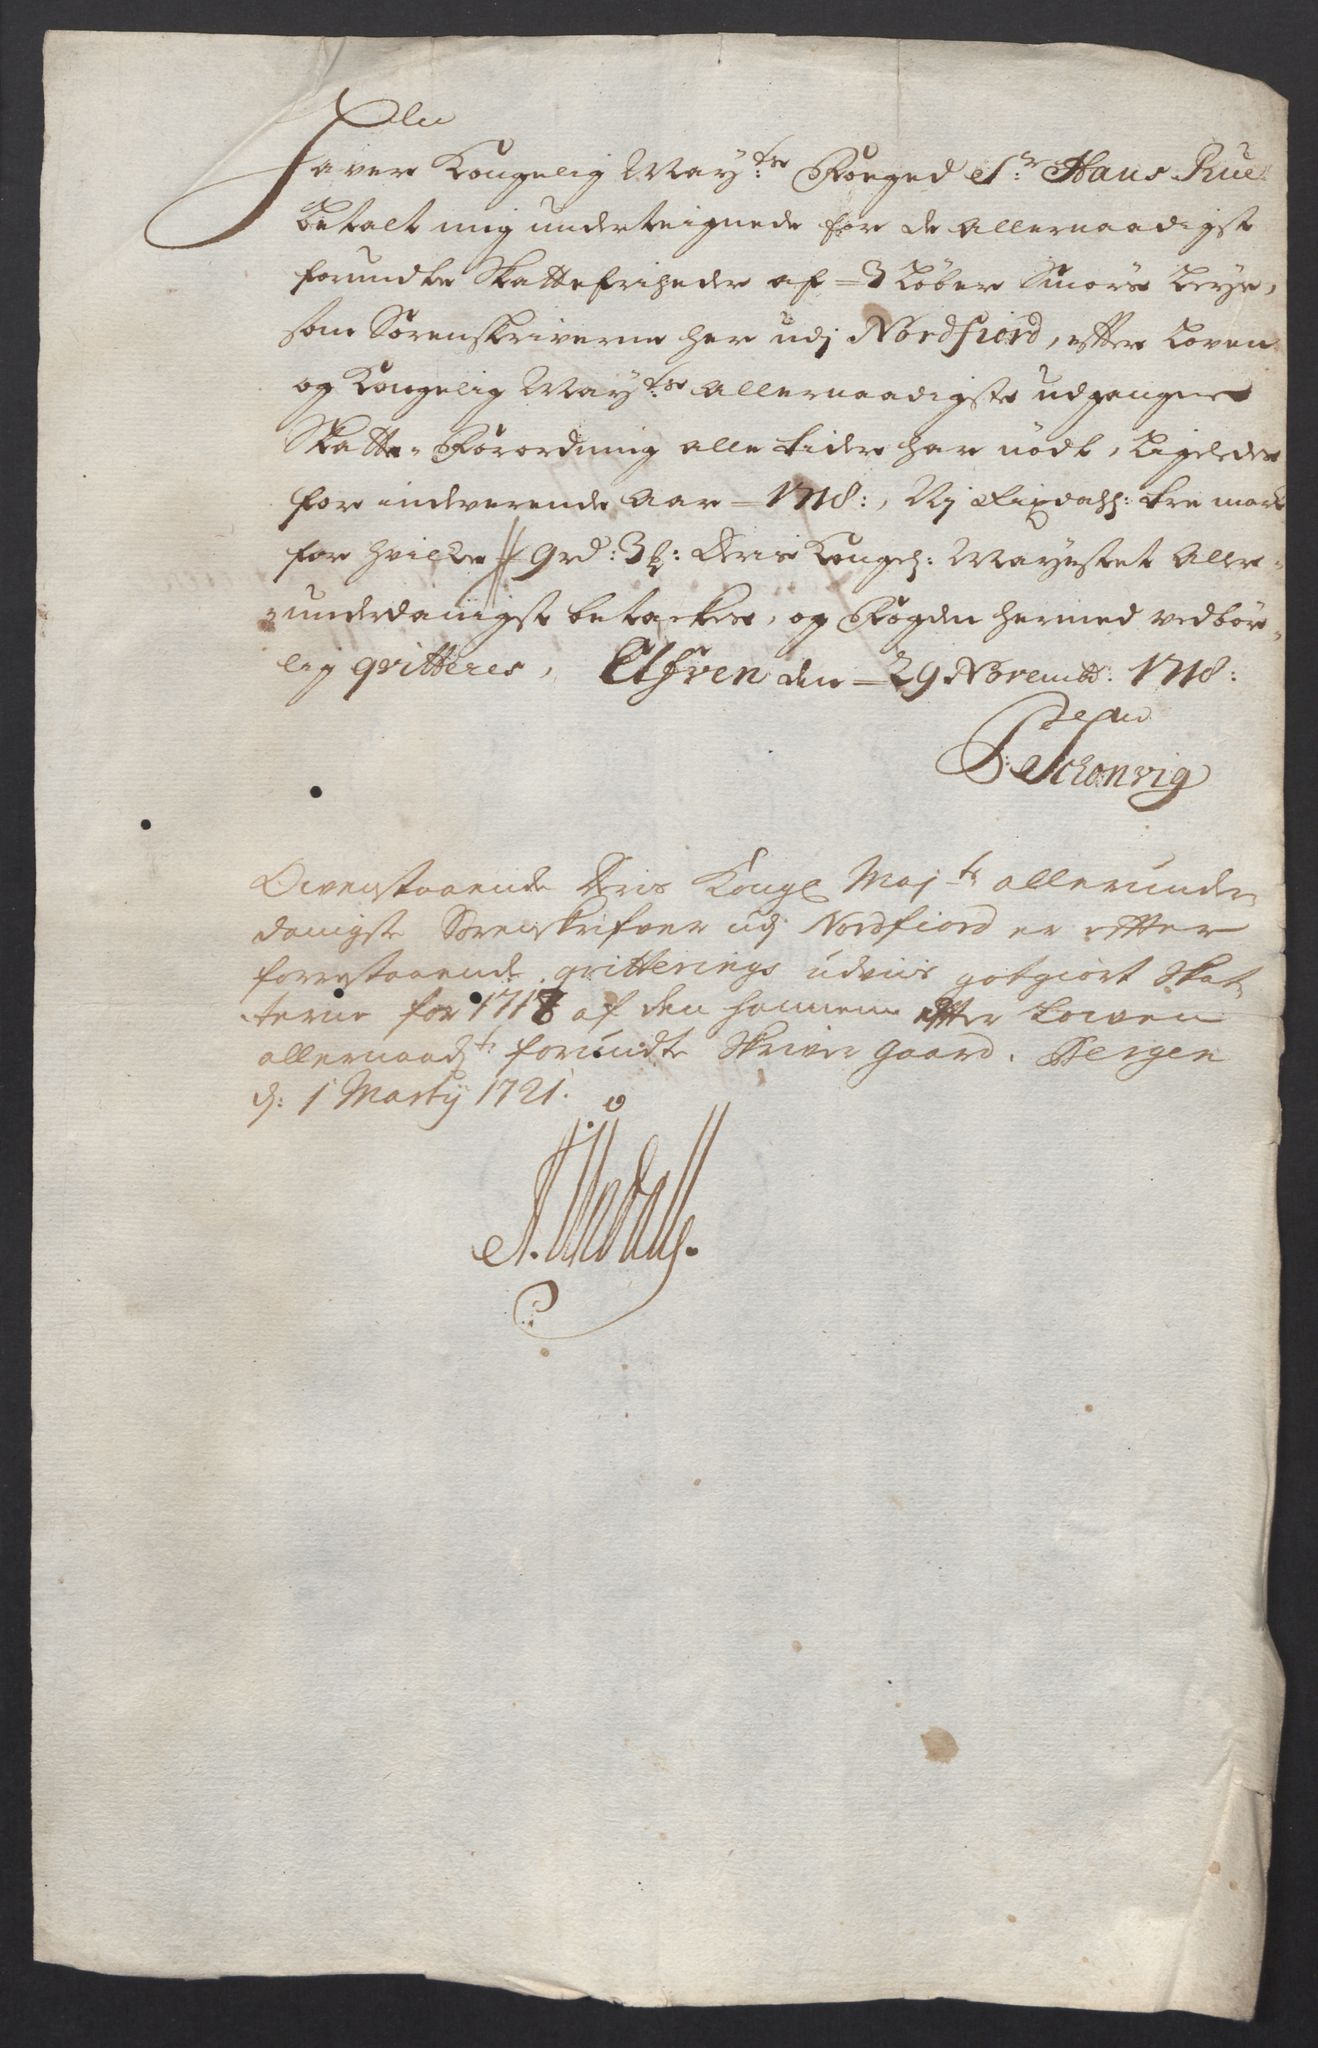 Haver Kongelig May:ts Foeged Sr: Hans Rue
betalt mig underteignede for de Allernaadigst
forundte Skattefriheder af 3 Løber Smørs Leye,
som Sorenskriverne her udj Nordfiord, efter Loven
og Kongelig May:ts Allernaadigste udgangne
Skatte-Forordning alle tider har nødt, Ligeledes
for indeverende Aar 1718:, Nj tre mark
for hvilke 9 rd: 3 ß: Deris Kongel: Mayestet Aller-
underdanigst betackes, og Fogden hermed vedbør-
lig qvitteres, den 29 Novembr: 1718:
Ovenstaaende Deris Kongl Mayts allerunder-
danigste Sorenskrifver udj Nordfiord er efter
forrestaaende qvitterings udviis gotgiort Skat-
terne for 1718 af den hannem efter Lowen
allernaadst forundte Skriver gaard. Bergen
d: 1 Martij 1721.